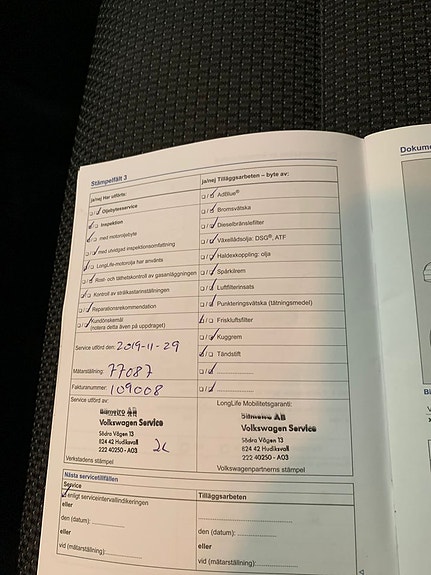 Stämpelfält 3
Dokume
ja/nej Har utförts:
ja/nej Tilläggsarbeten – byte av:
Oljebytesservice
AdBlue®
Inspektion
Bromsvätska
med motoroljebyte
Dieselbränslefilter
med utvidgad inspektionsomfattning
Växellådsolja: DSG®, ATF
LongLife-motorolja har använts
Haldexkoppling: olja
Rost- och täthetskontroll av gasanläggningen
Spårkilrem
Kontroll av strålkastarinställningen
Luftfilterinsats
Reparationsrekommendation
Punkteringsvätska (tätningsmedel)
Kundönskemål
(notera detta även på uppdraget)
Friskluftsfilter
Kuggrem
Service utförd den: 2019-11-29
Tändstift
Mätarställning: 77087
Fakturanummer: 109008
Service utförd av:
LongLife Mobilitetsgaranti:
Bilmetro AB
Bilmetro AB
Volkswagen Service
Volkswagen Service
Södra Vägen 13
Södra Vägen 13
824 42 Hudiksvall
824 42 Hudiksvall
222 40250 - A03
222 40250 - A03
Verkstadens stämpel
Volkswagenpartnerns stämpel
Nästa servicetillfällen
Service
Tilläggsarbeten
enligt serviceintervallindikeringen
eller
den (datum):
den (datum):
eller
eller
vid (mätarställning):
vid (mätarställning):